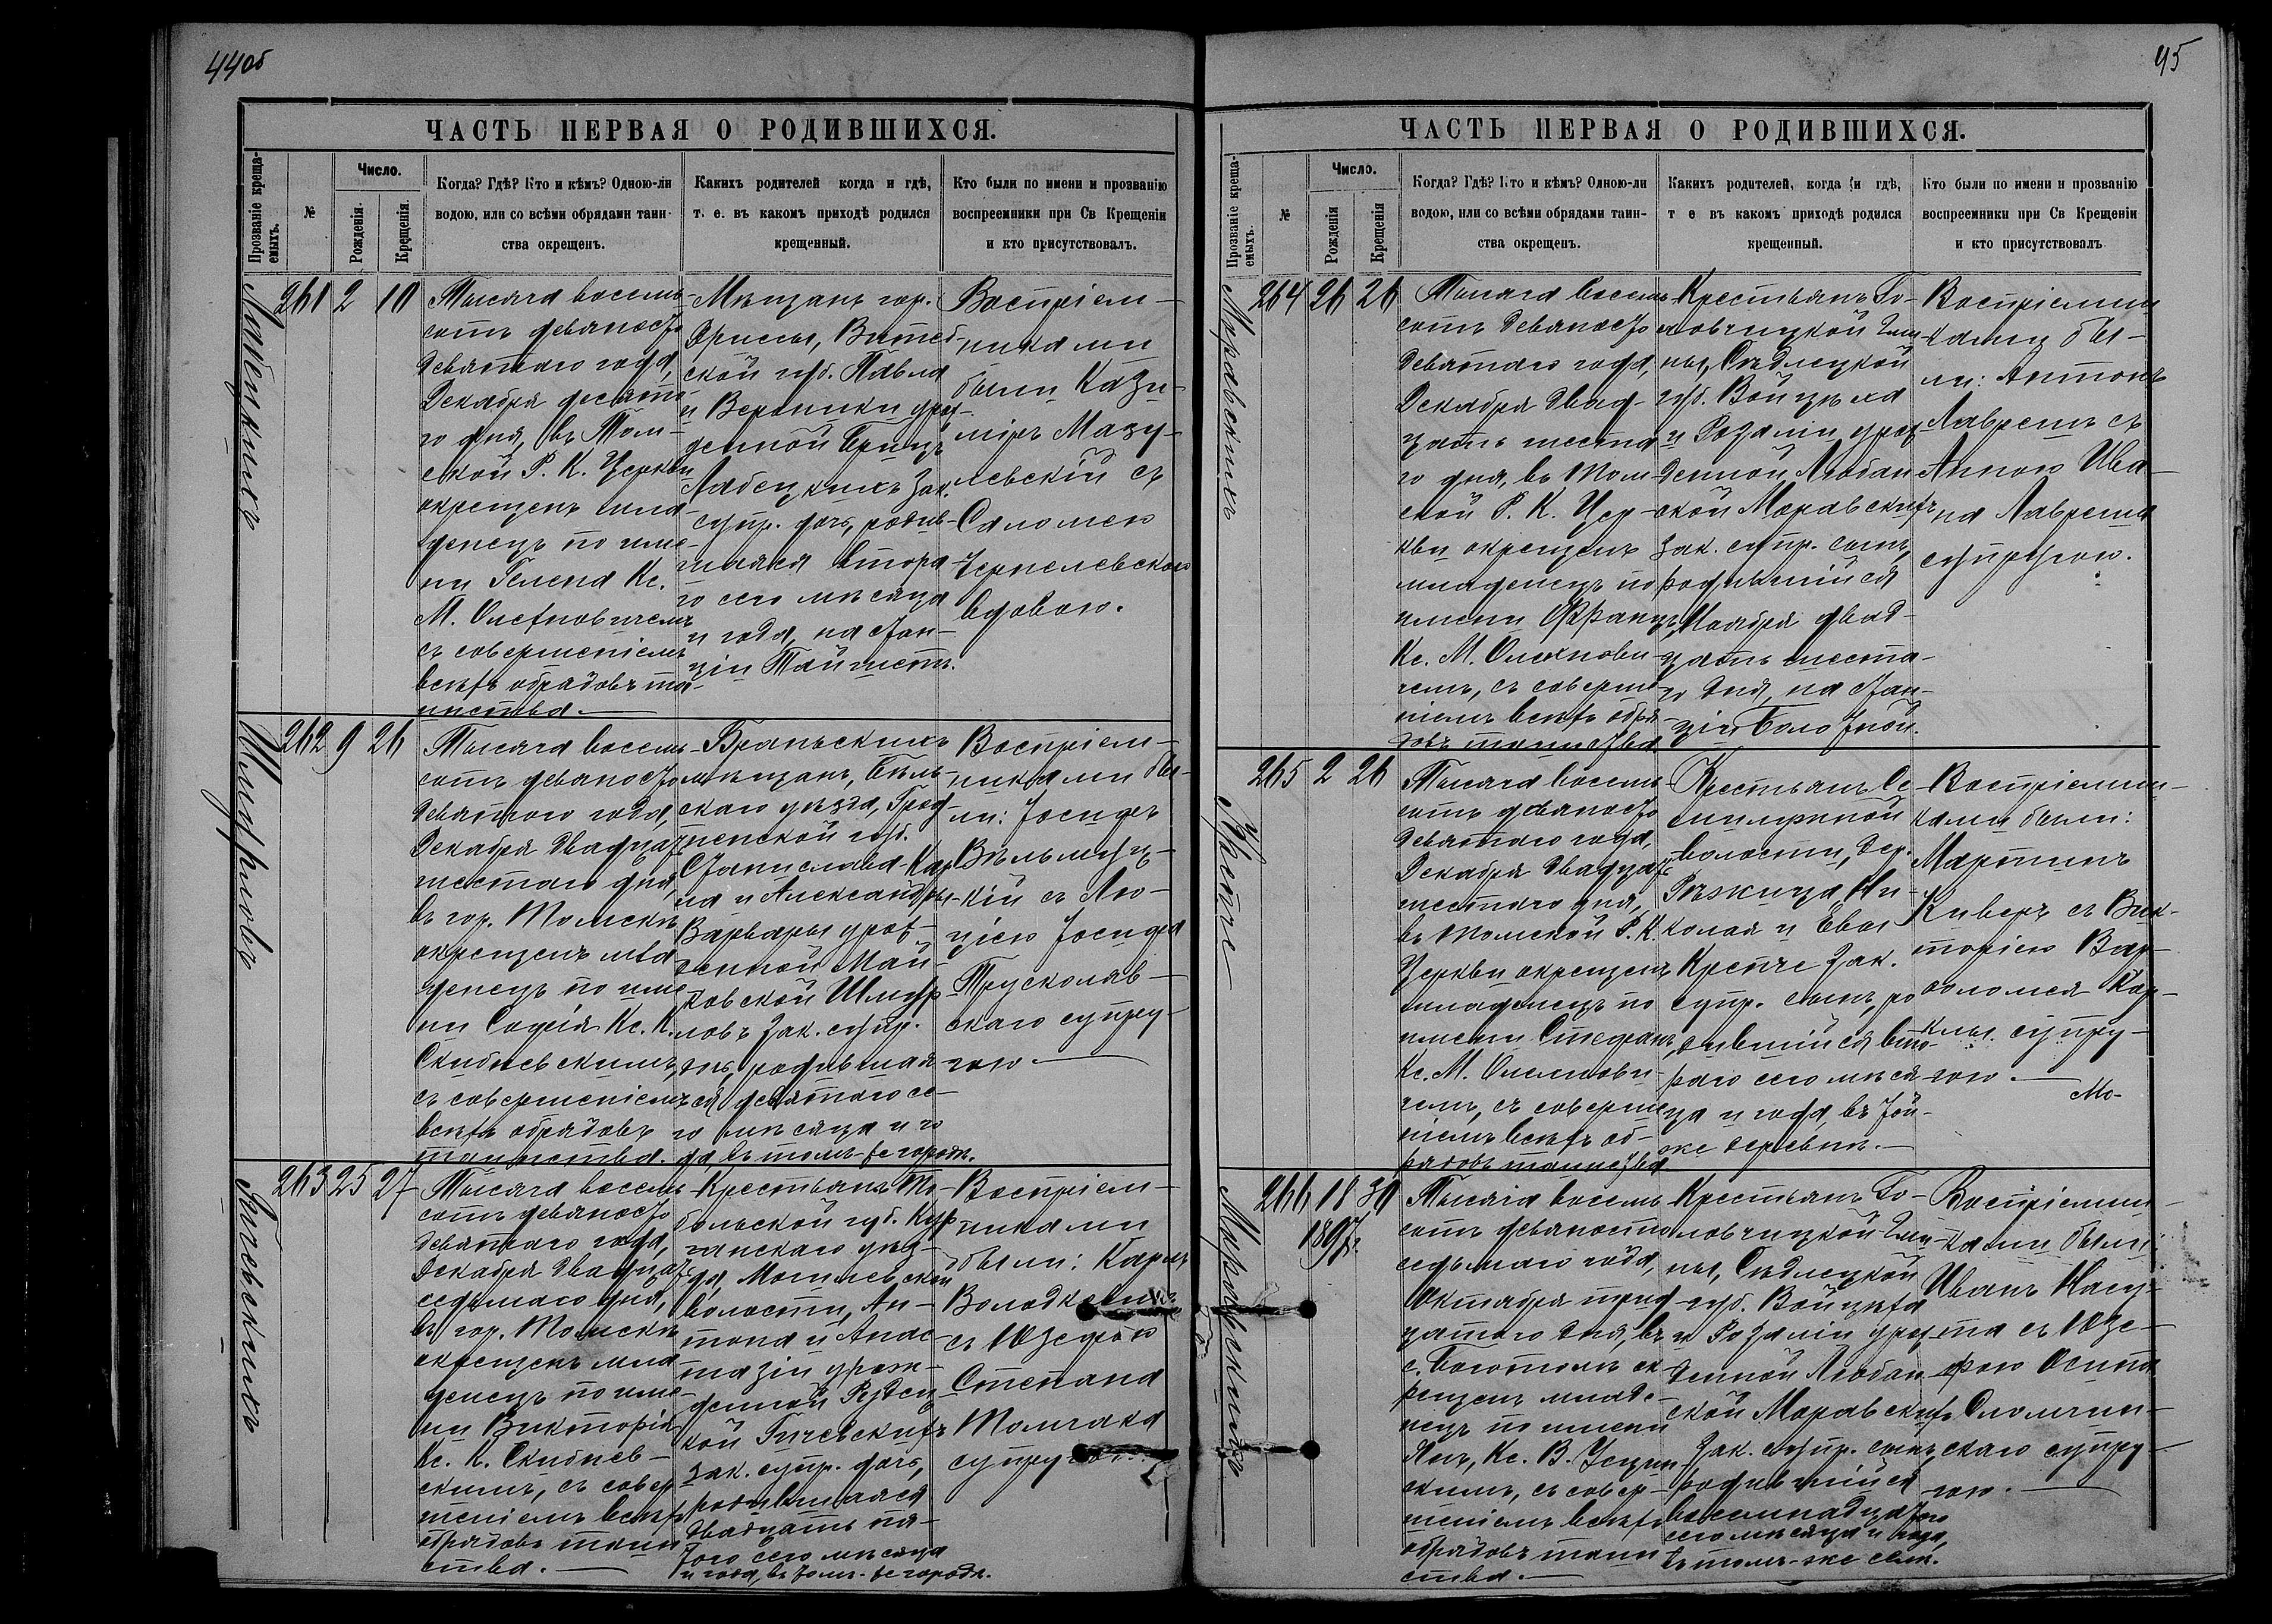 44об
ЧАСТЬ ПЕРВАЯ О РОДИВШИХСЯ.
Прозваніе креща-
емыхъ.
№
Число.
Рожденія.
Крещенія.
Когда? Гдѣ? Кто и кѣмъ? Одною-ли
водою, или со всѣми обрядами таин-
ства окрещенъ.
Какихъ родителей когда и гдѣ,
т. е. въ какомъ приходѣ родился
крещенный.
Кто были по имени и прозванію
воспреемники при Св Крещеніи
и кто присутствовалъ.
Лабецкихъ
261 2 10
Тысяча восемь-
сотъ девяносто
девятаго года,
Декабря десята-
го дня, въ Том-
ской Р. К. Церкви
окрещенъ мла-
денецъ по име-
ни Гелена Кс.
М. Олехновичемъ
съ совершеніемъ
всѣхъ обрядовъ та-
инства.
Мѣщанъ гор.
Дриссы, Витеб-
ской губ. Павла
и Вероники урож-
денной
Лабецкихъ зак.
супр. дочь, родив-
шаяся второ-
го сего мѣсяца
и года, на стан-
ціи Тайга
Воспріем-
никами
были Кази-
міръ Мазу-
левскій съ
Саломею
вдовою.
Шмурловъ
262 9 26
Тысяча восемь-
сотъ девяносто
девятого года,
Декабря двадцать
шестаго дня,
въ гор. Томскѣ
окрещенъ мла-
денецъ по име-
ни Софія Кс. К.
Скибневскимъ,
съ совершеніемъ
всѣхъ обрядовъ
таинства.
Браньскихъ
мѣщанъ, Бѣль-
скаго уѣзда, Грод-
ненской губ.
Станислава-Кар-
ла и Александры-
Варвары урож-
денной Май-
ковской Шмур-
ловъ зак. супр.
дочь, родившая-
ся девятаго се-
го мѣсяца и го-
да, въ томъ-же городѣ.
Воспріем-
никами бы-
ли: Іосифъ
кій съ Лю-
ціею Іосифа
Трусколяв-
скаго супру-
гою
Гичевскихъ
263 25 27
Тысяча восемь
сотъ девяносто
девятаго года,
Декабря двадцать
седьмаго дня,
въ гор. Томскѣ
окрещенъ мла-
денецъ по име-
ни Викторія
Кс. К. Скибнев-
скимъ, съ совер-
шеніемъ всѣхъ
обрядовъ таин-
ства.
Крестьянъ То-
больской губ. Кур-
ганскаго уѣз-
да, Могилевской
волости, Ан-
тона и Анас-
тазіи урож-
денной
кой Гичевскихъ
зак. супр. дочь,
родившаяся
двадцать пя-
того сего мѣсяца
и года, въ томъ-же городѣ.
Воспріем-
никами
были: Карлъ
съ Юзефою
Степана
Томчака
супругою.
45
ЧАСТЬ ПЕРВАЯ О РОДИВШИХСЯ.
Прозваніе креща-
емыхъ.
№
Число.
Рожденія
Крещенія
Когда? Гдѣ? Кто и кѣмъ? Одною-ли
водою, или со всѣми обрядами таин-
ства окрещенъ.
Какихъ родителей, когда и гдѣ,
т е въ какомъ приходѣ родился
крещенный.
Кто были по имени и прозванію
воспреемники при Св Крещеніи
и кто присутствовалъ
Моравскихъ
264 26 26
Тысяча восемь
сотъ девяносто
девятаго года,
Декабря двад-
цать шеста-
го дня, въ Том-
ской Р. К. Цер-
кви окрещенъ
младенецъ по
имени Францъ,
Кс. М. Олехнови-
чемъ, съ соверше-
ніемъ всѣхъ обря-
довъ таинства
Крестьянъ Го-
ловчицкой Гми-
ны, Сѣдлецкой
губ. Войцѣха
и Розаліи урож-
денной Любан-
ской Моравскихъ
зак. супр. сынъ,
родившійся
Ноября двад-
цать шеста-
го дня, на стан-
ціи Болотной.
Воспріемни-
ками бы-
ли: Антонъ
Лавреш съ
Анною Ива-
на Лавреша
супругою.
Крепче
265 2 26
Тысяча восемь
сотъ девяносто
девятаго года,
Декабря двадцать
шестаго дня,
въ Томской Р. К.
Церкви окрещенъ
младенецъ по
имени Стефанъ,
Кс. М. Олехнови-
чемъ, съ соверше-
ніемъ всѣхъ об-
рядовъ таинства
Крестьянъ Се-
милужной
волости, дер.
Ни-
колая и Евы
Крепче зак.
супр. сынъ, ро-
дившійся вто-
раго сего мѣся-
ца и года, въ той-
же деревнѣ.
Воспріемни-
ками были:
Мартинъ
Киверъ съ Вик-
торіею Вар-
ѳоломея
супру-
гою.
Мо-
Моравскихъ
266 18 30
1897г.
Тысяча восемь
сотъ девяносто
седьмаго года,
Октября трид-
цатаго дня, въ
с. Боготолъ ок-
рещенъ младе-
нецъ по имени
Янъ, Кс. В.
скимъ, съ совер-
шеніемъ всѣхъ
обрядовъ таин-
ства.
Крестьянъ Го-
ловчицкой Гми-
ны, Сѣдлецкой
губ. Войцѣха
и Розаліи урож-
денной Любан-
ской Моравскихъ
зак. супр. сынъ,
родившійся
восемнадцатого
сего мѣсяца и года,
въ томъ-же селѣ.
Воспріемни-
ками были:
Иванъ
съ Юзе-
фою Осипа
Сломчин-
скаго супру-
гою.